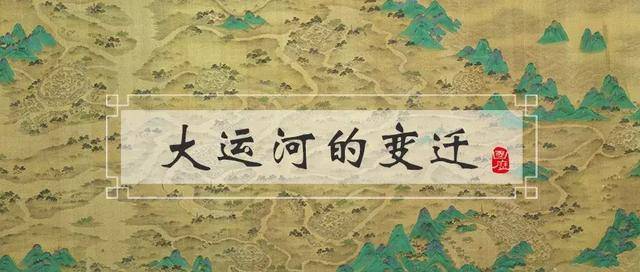 大运河的变迁